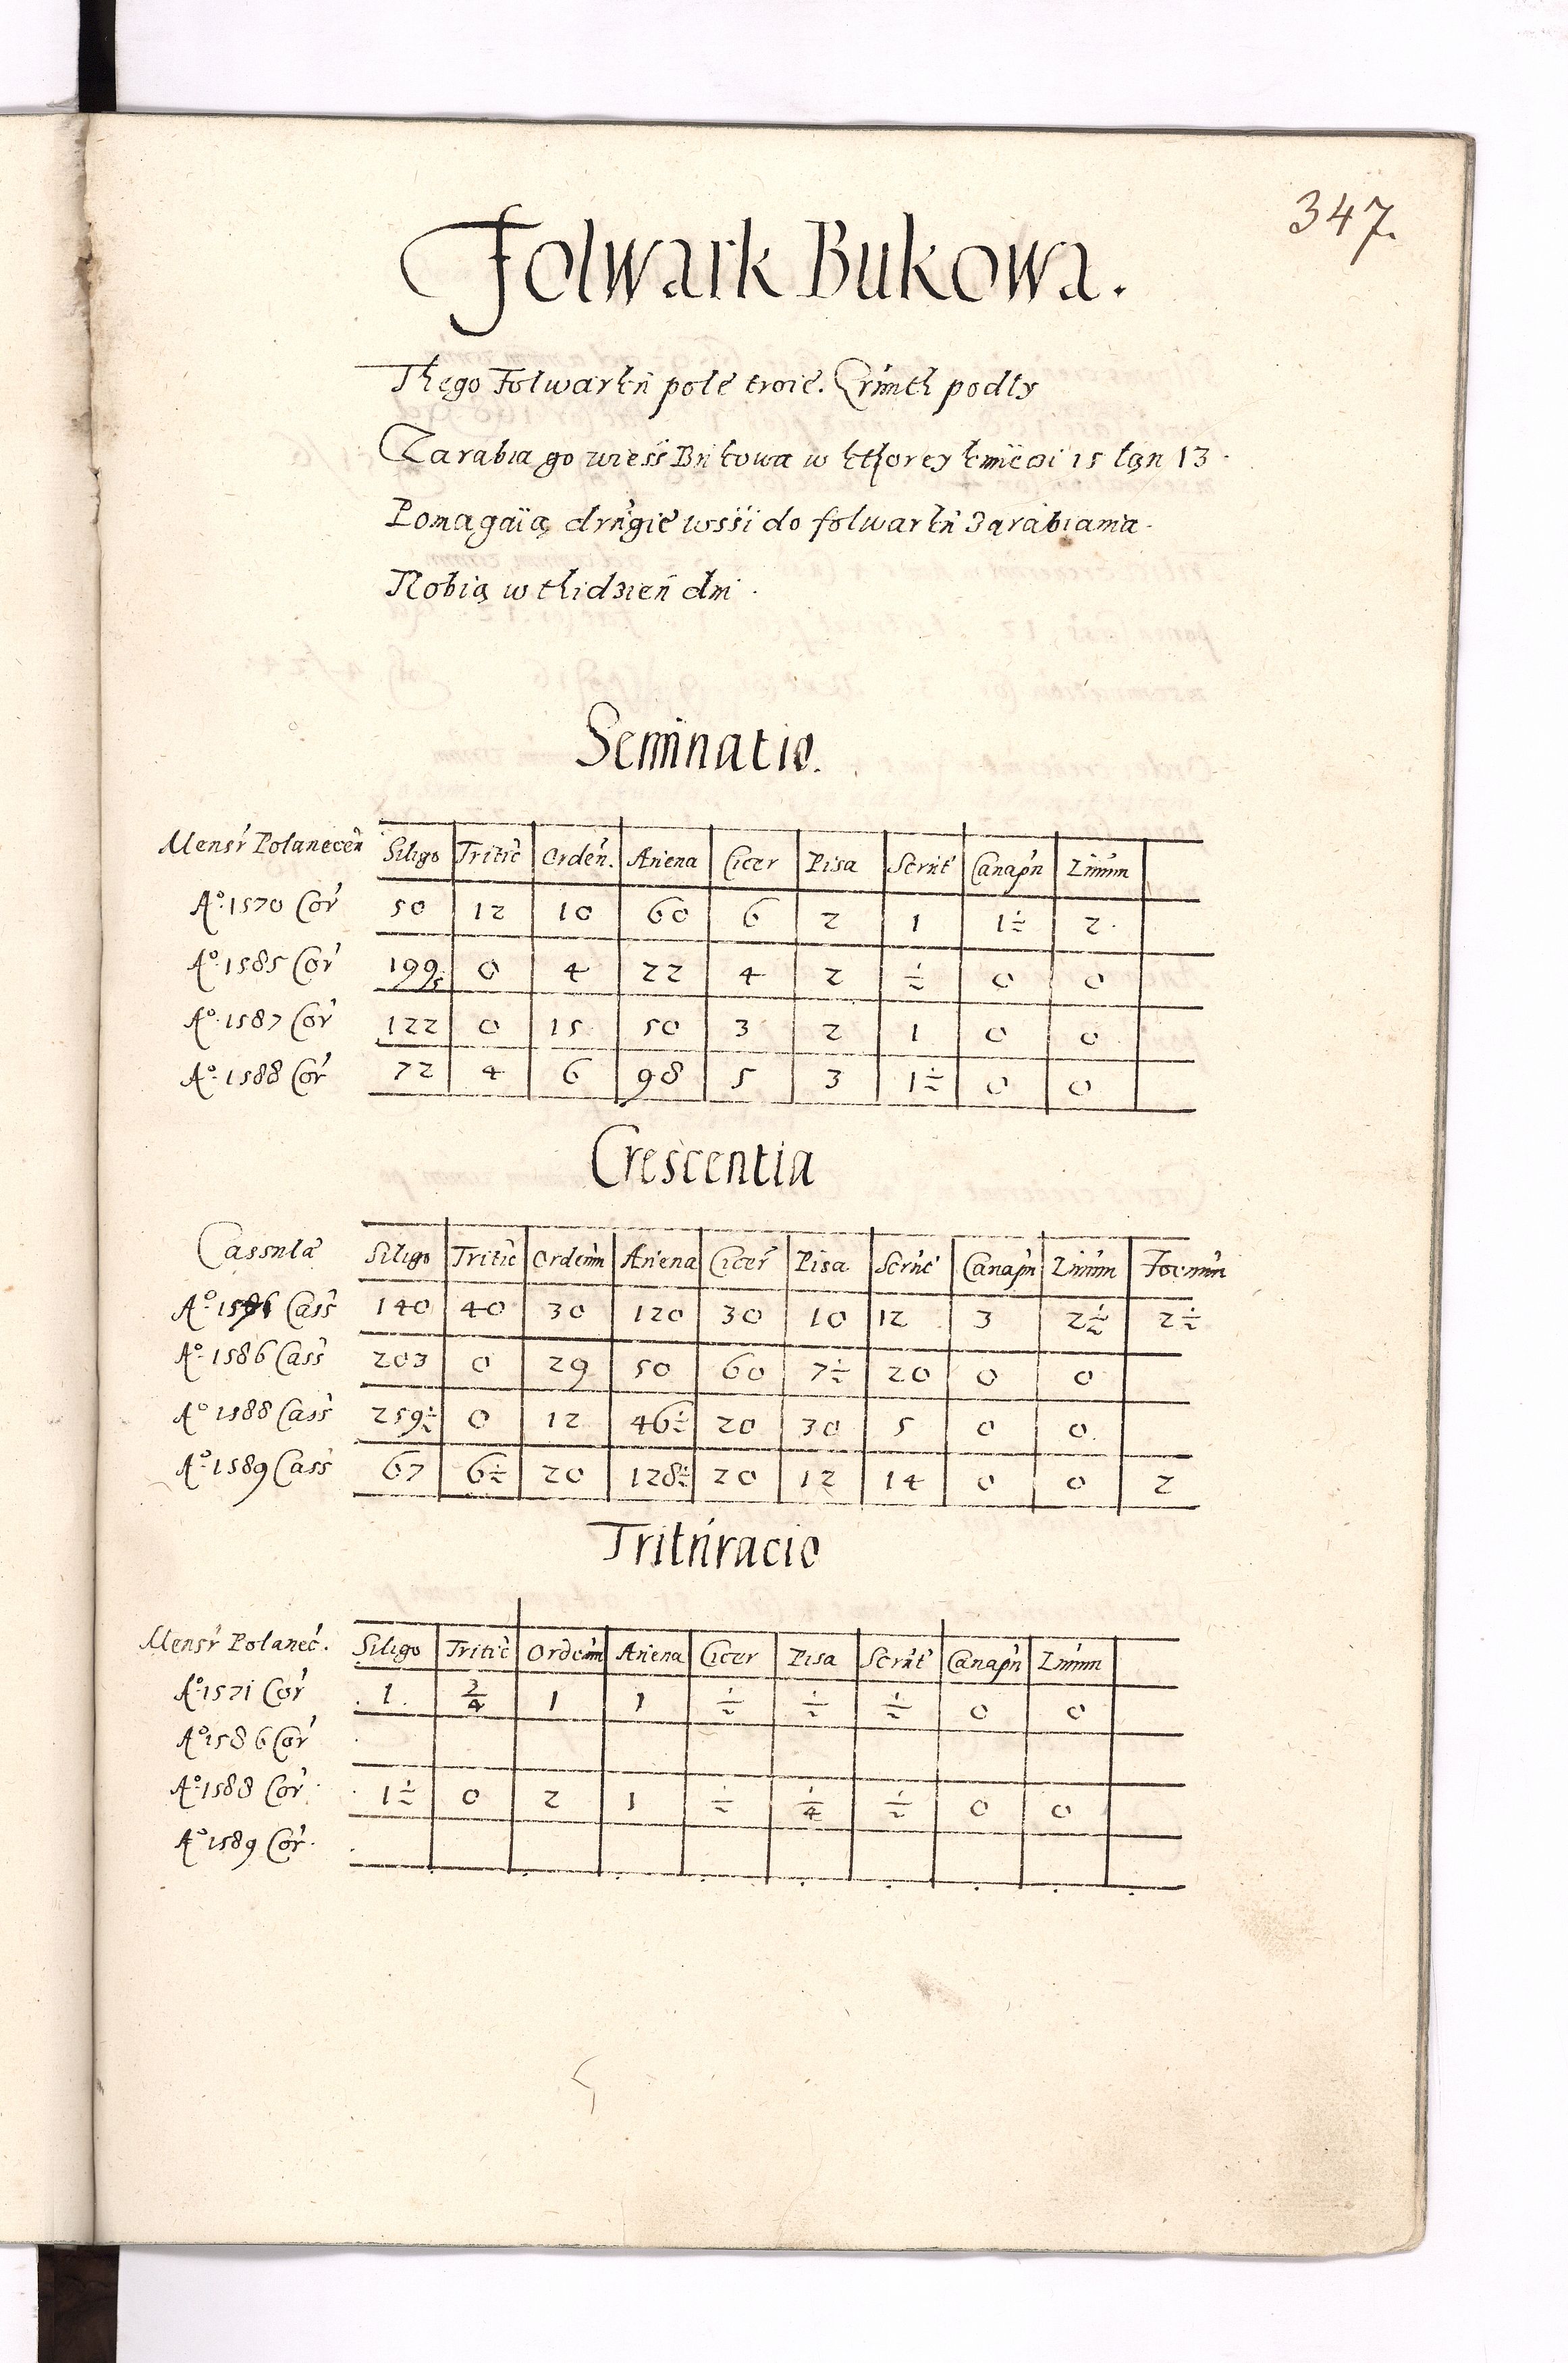 347.
Folwark Bukowa.
Thego Folwarku pole troie. Grunth podły
Zarabia go wiess Bukowa w kthorey kmieci 15 łan 13.
Pomagaią drugie wssi do folwarku Zarabiania.
Robią w thidzień dni.
Seminatio.
Mensr Polanecen Siligo Tritic Ordeu. Auena Cicer Pisa Scrut Canapu Linum
Aº. 1570 Cor 50 12 10 60 6 2 1 1½ 2.
Aº. 1585 Cor 0 4 22 4 2 ½ 0 0
Aº. 1587 Cor 122 0 15 50 3 2 1 0 0
Aº. 1588 Cor 72 4 6 98 5 3 1½ 0 0
Crescentia
Cassula Siligo Tritic Ordeum Auena Cicer Pisa Scrut Canapu Linum Foenum
Aº. Cass 140 40 30 120 30 10 12 3 2½ 2½
Aº. 1586 Cass 203 0 29 50 60 7½ 20 0 0
Aº 1588 Cass 259½ 0 12 46½ 20 30 5 0 0.
Aº. 1589 Cass 67 6½ 20 128½ 20 12 14 0 0 2
Trituracio
Mensr Polanec. Siligo Tritic Ordeum Auena Cicer Pisa Scrut Canapu Linum
Aº. 1571 Cor 1. ¾ 1 1 ½ ½ ½ 0 0
Aº. 1586 Cor
Aº. 1588 Cor 1½ 0 2 1 ½ ¼ ½ 0 0
Aº 1589 Cor.